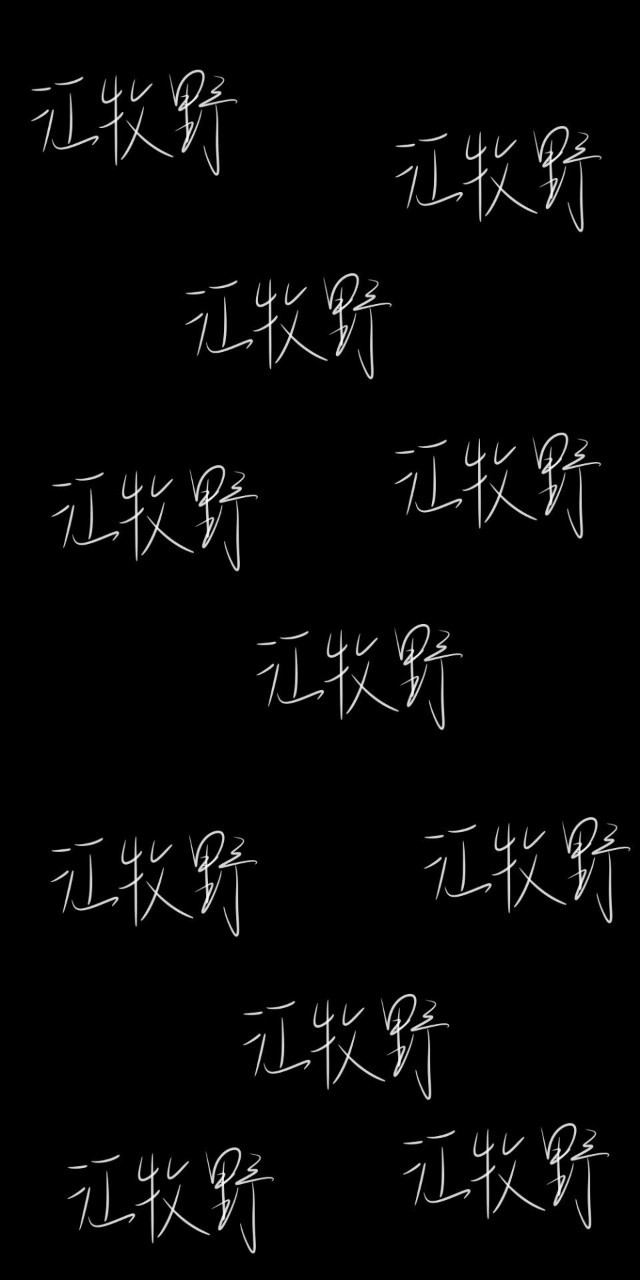 江牧野
江牧野
江牧野
江牧野
江牧野
江牧野
江牧野
江牧野
江牧野
江牧野
江牧野